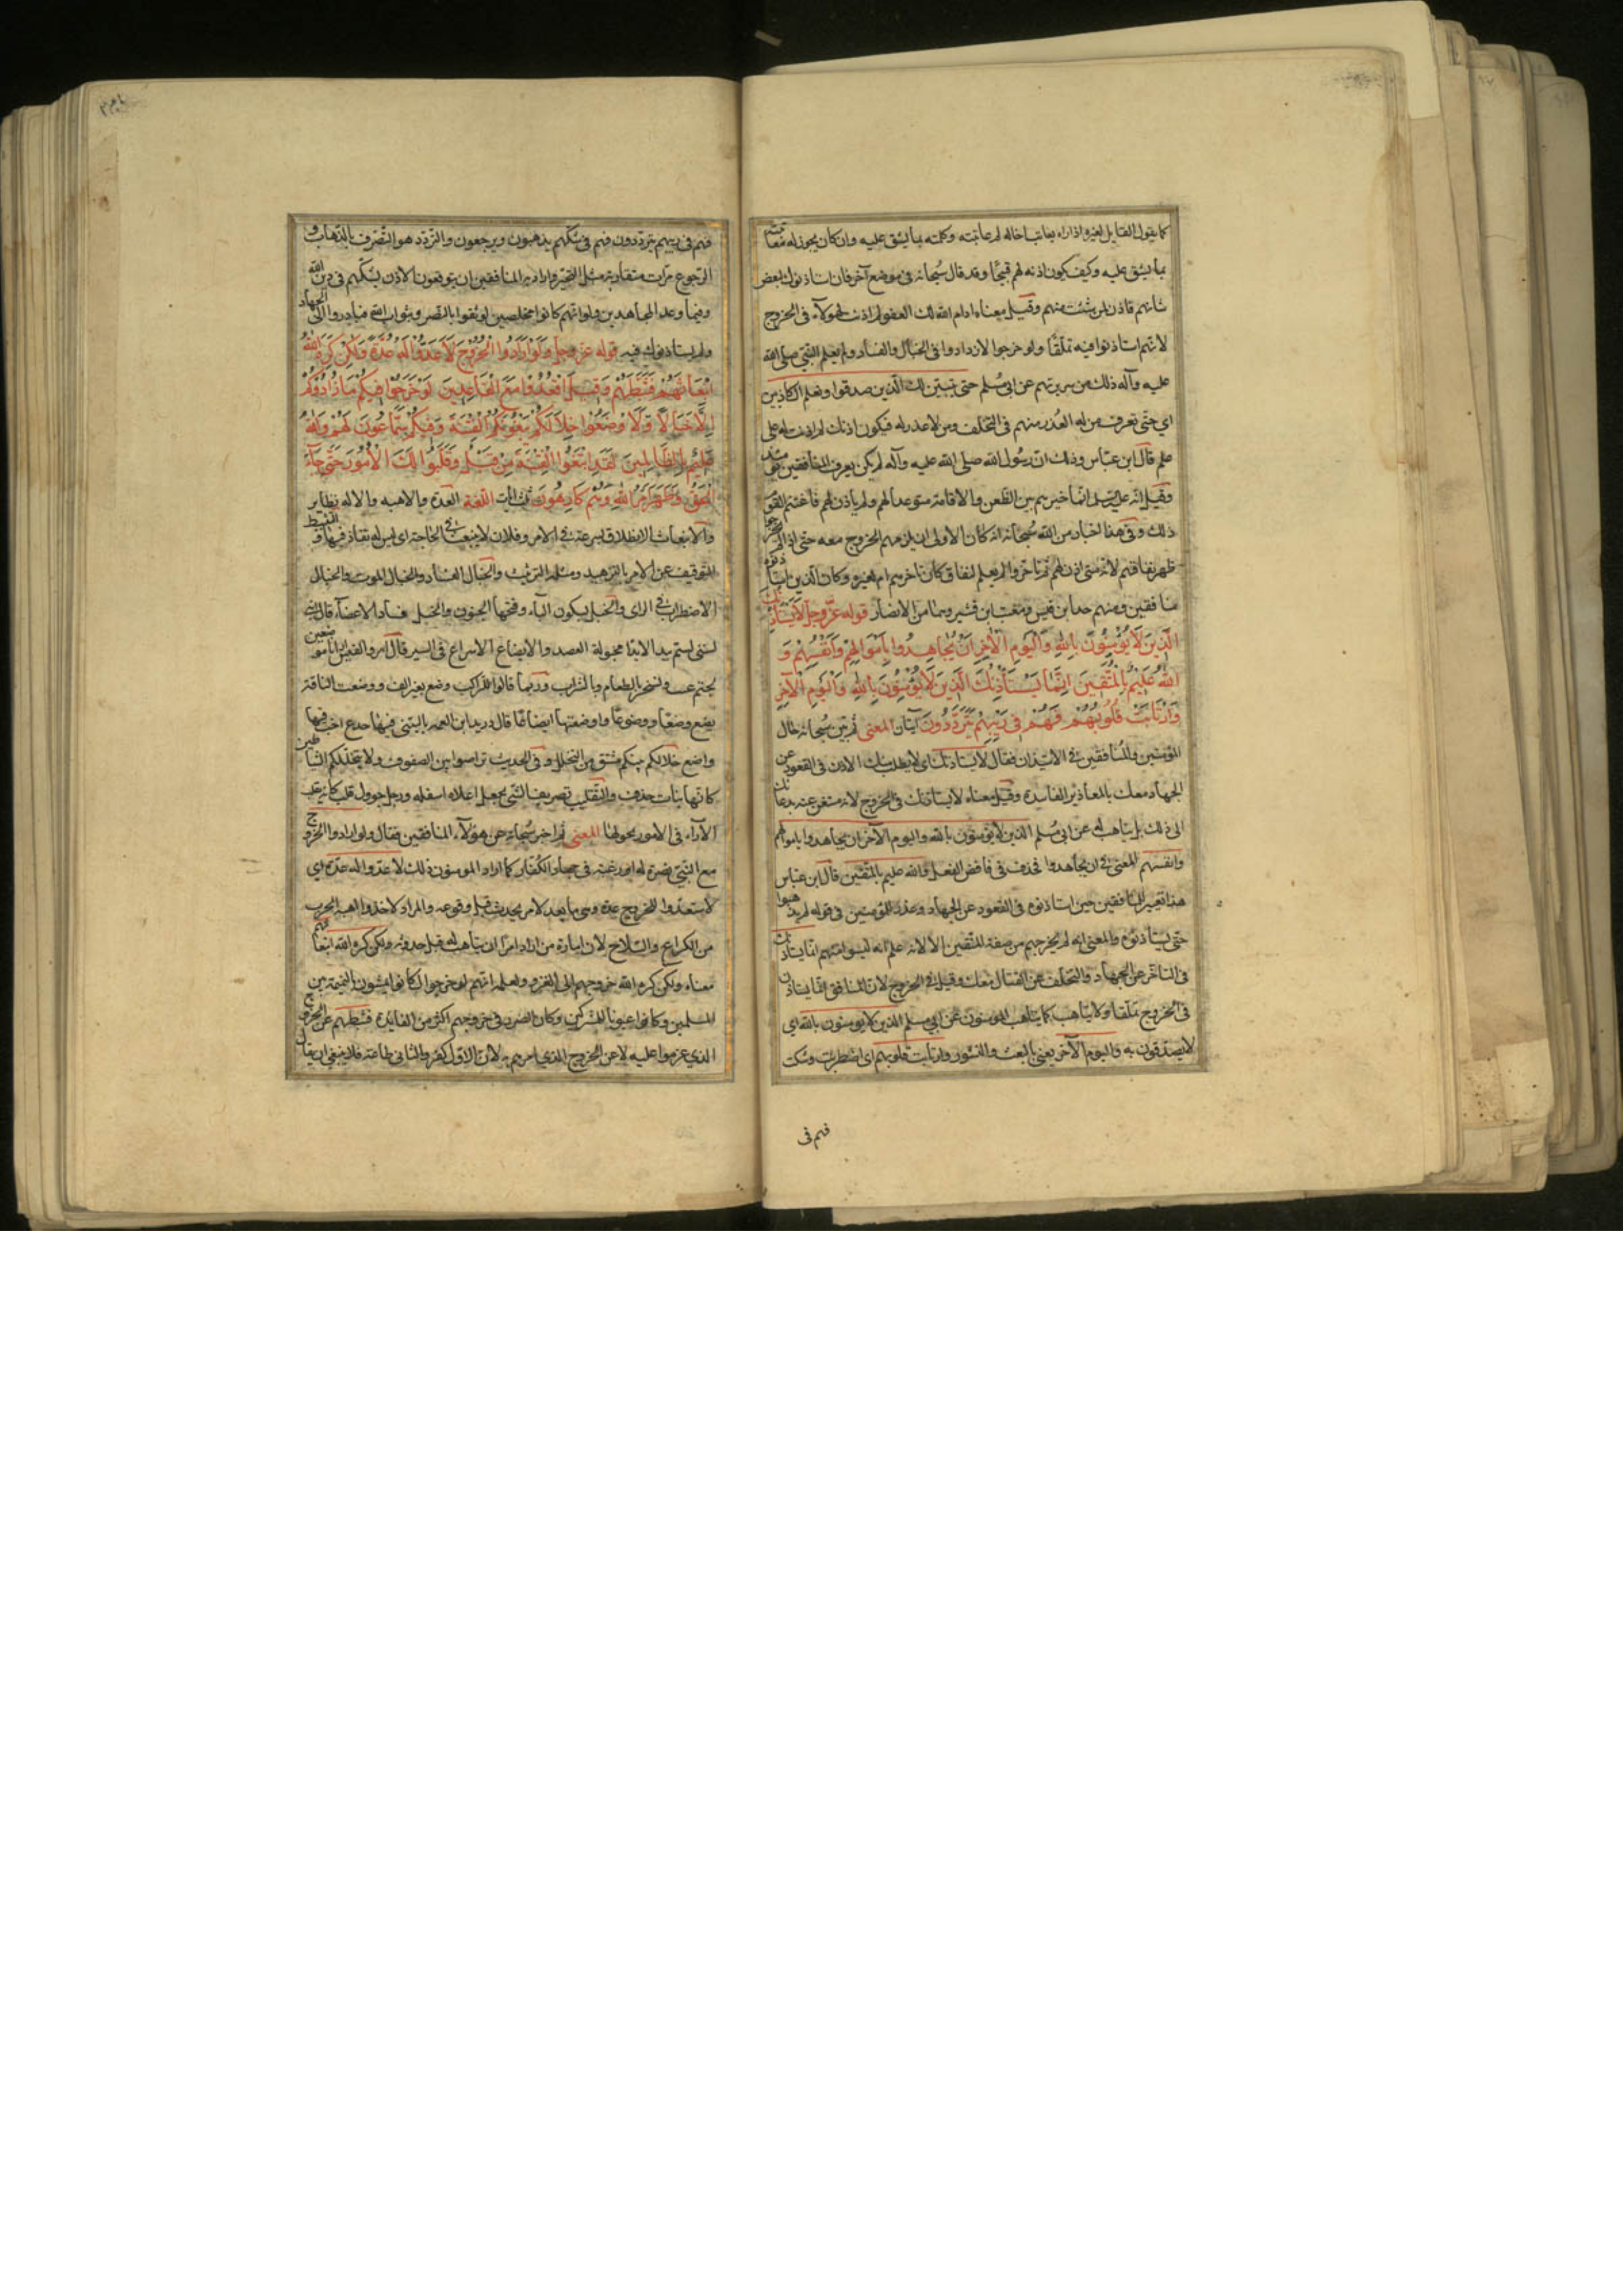 كما يقول القايل لغيره اذا راه يعاتبا خاله لم عاتبته وكلمته بما يشق عليه وان كان يجوز له معاتبته
بما يشق عليه وكيف يكون اذنه لهم قبيحا وقد قال سبحانه في موضع آخر فان استاذنوك لبعض
شانهم فاذن لمن شئت منهم وقيل معناه ادام الله لك العفو لم اذنت لهولآء في الخروج
لانهم استاذنوا فيه تملقا ولو خرجوا لازدادوا في الخبال والفساد ولم يعلم النبي صلى الله
عليه وآله ذلك من سريرتهم عن ابي مسلم حتى يتبين لك الذين صدقوا وتعلم الكاذبين
اي حتى تعرف من له العذر منهم في التخلف ومن لا عذر له فيكون اذنك لم اذنت له على
علم قال ابن عباس وذلك ان رسول الله صلى الله عليه وآله لم يكن يعرف المنافقين يومئذ
وقيل انه عليه السلم انما خيرهم بين الظعن والاقامة متوعدا لهم ولم ياذن لهم فاغتنم القوم
ذلك وفي هذا اخبار من الله سبحانه انه كان الاولى ان يلزمهم الخروج معه حتى اذا لم يخرجوا
ظهر نفاقهم لانه متى اذن لهم ثم تاخروا لم يعلم لنفاق كان تاخرهم ام لغيره وكان الذين استاذنوه
منافقين ومنهم جد ابن قيس ومعتب ابن قشير وهما من الانصار قوله عز وجل لا يستاذنك
الذين لا يؤمنون بالله واليوم الآخر ان يجاهدوا باموالهم وانفسهم و
الله عليم بالمتقين انما يستأذنك الذين لا يؤمنون بالله واليوم الآخر
وارتابت قلوبهم فهم في ريبهم يترددون آيتان المعنى ثم بين سبحانه حال
المؤمنين والمنافقين في الاستيذان فقال لا يستاذنك اي لا يطلب منك الاذن في القعود عن
الجهاد معك بالمعاذير الفاسدة وقيل معناه لا يستاذنك في الخروج لانه مستغن عنه بدعائك
الى ذلك بل يتاهب له عن ابي مسلم الذين لا يؤمنون بالله واليوم الآخر ان يجاهدوا باموالهم
وانفسهم المعنى في ان يجاهدوا فحذف في فافضى الفعل والله عليم بالمتقين قال ابن عباس
هذا تعيير للمنافقين حين استاذنوه في القعود عن الجهاد وعذر للمؤمنين في قوله لم يذهبوا
حتى يستأذنوه والمعنى انه لم يخرجهم من صفة المتقين الا لانه علم انه ليسوا منهم انما يستاذنك
في التاخر عن الجهاد والتخلف عن القتال معك وقيل في الخروج لان المنافق انما يستاذن
في الخروج تملقا ولا يتاهب كما يتاهب المومنون عن ابي مسلم الذين لا يومنون بالله اي
لا يصدقون به واليوم الآخر يعني بالبعث والنشور وارتابت قلوبهم اي اضطربت وشكت
فهم في
فهم في ريبهم يترددون فهم في شكهم يذهبون ويرجعون والتردد هو التصرف بالذهاب و
الرجوع مرات متقاربة مثل التحير واراد به المنافقين ان يتوقعون الاذن لشكهم في دين الله
وفيما وعد المجاهدين ولو انهم كانوا مخلصين لوثقوا بالنصر وبثواب الله فبادروا الى الجهاد
ولم يستاذنوك فيه قوله عز وجل ولو ارادوا الخروج لاعدوا له عدة ولكن كره الله
انبعاثهم فثبطهم وقيل اقعدوا مع القاعدين لو خرجوا فيكم ما زادوكم
الا خبالا ولا وضعوا خلالكم يبغونكم الفتنة وفيكم سماعون لهم والله
عليم بالظالمين لقد ابتغوا الفتنة من قبل وقلبوا لك الامور حتى جآء
الحق وظهر امر الله وهم كارهون ثلث آيات اللغة العدة والاهبه والاله نظاير
والانبعاث الانطلاق بسرعة في الامر وفلان لا ينبعث في الحاجة اي ليس له نفاذ فيها والتثبط
التوقيف عن الامر بالتزهيد ومثله التربيث والخبال الفساد والخبال الموت والخبال
الاضطراب في الراى والخبل بسكون البآء وفتحها الجنون والخبل فساد الاعضآء قال
لبنى لستم بيدا لا يدا مخبولة العضد والايضاع الاسراع في السير قال امرؤ القيس ارانا موضعين
لحتم غيب ونسحر بالطعام وبالشراب وربما قالوا للراكب وضع بغير الف ووضعت الناقة
يضع وضعا ووضوعا واوضعتها ايضاعا قال دريد ابن الصمه يا ليتني فيها جذع اخب فيها
واضع خلالكم بينكم مشتق من التخلل وفي الحديث تراصوا بين الصفوف ولا يتخللكم الشياطين
كانها بنات حذف والتقليب تصريف الشي بجعل اعلاه اسفله ورجل حول قلب كانه يقلب
الآراء في الامور يحولها المعنى ثم اخبر سبحانه عن هؤلآء المنافقين فقال ولو ارادوا الخروج
مع النبي نصرة له او رغبة في جهاد الكفار كما اراد المومنون ذلك لاعدوا له عدة اي
لاستعدوا للخروج عدة وهي ما يعد لامر يحدث قبل وقوعه والمراد لاخذوا اهبة الحرب
من الكراع والسلاح لان امارة من اراد امرا ان يتاهب له قبل حدوثه ولكن كره الله انبعاثهم
معناه ولكن كره الله خروجهم الى الغزو ولعلمه انهم لو خرجوا لكانوا يمشون بالنميمة بين
المسلمين وكانوا عيونا للمشركين وكان الضرر في خروجهم اكثر من الفايدة فثبطهم عن الخروج
الذي عزموا عليه لا عن الخروج الذي امرهم به لان الاول كفر والثاني طاعته فلا ينبغي ان يقال